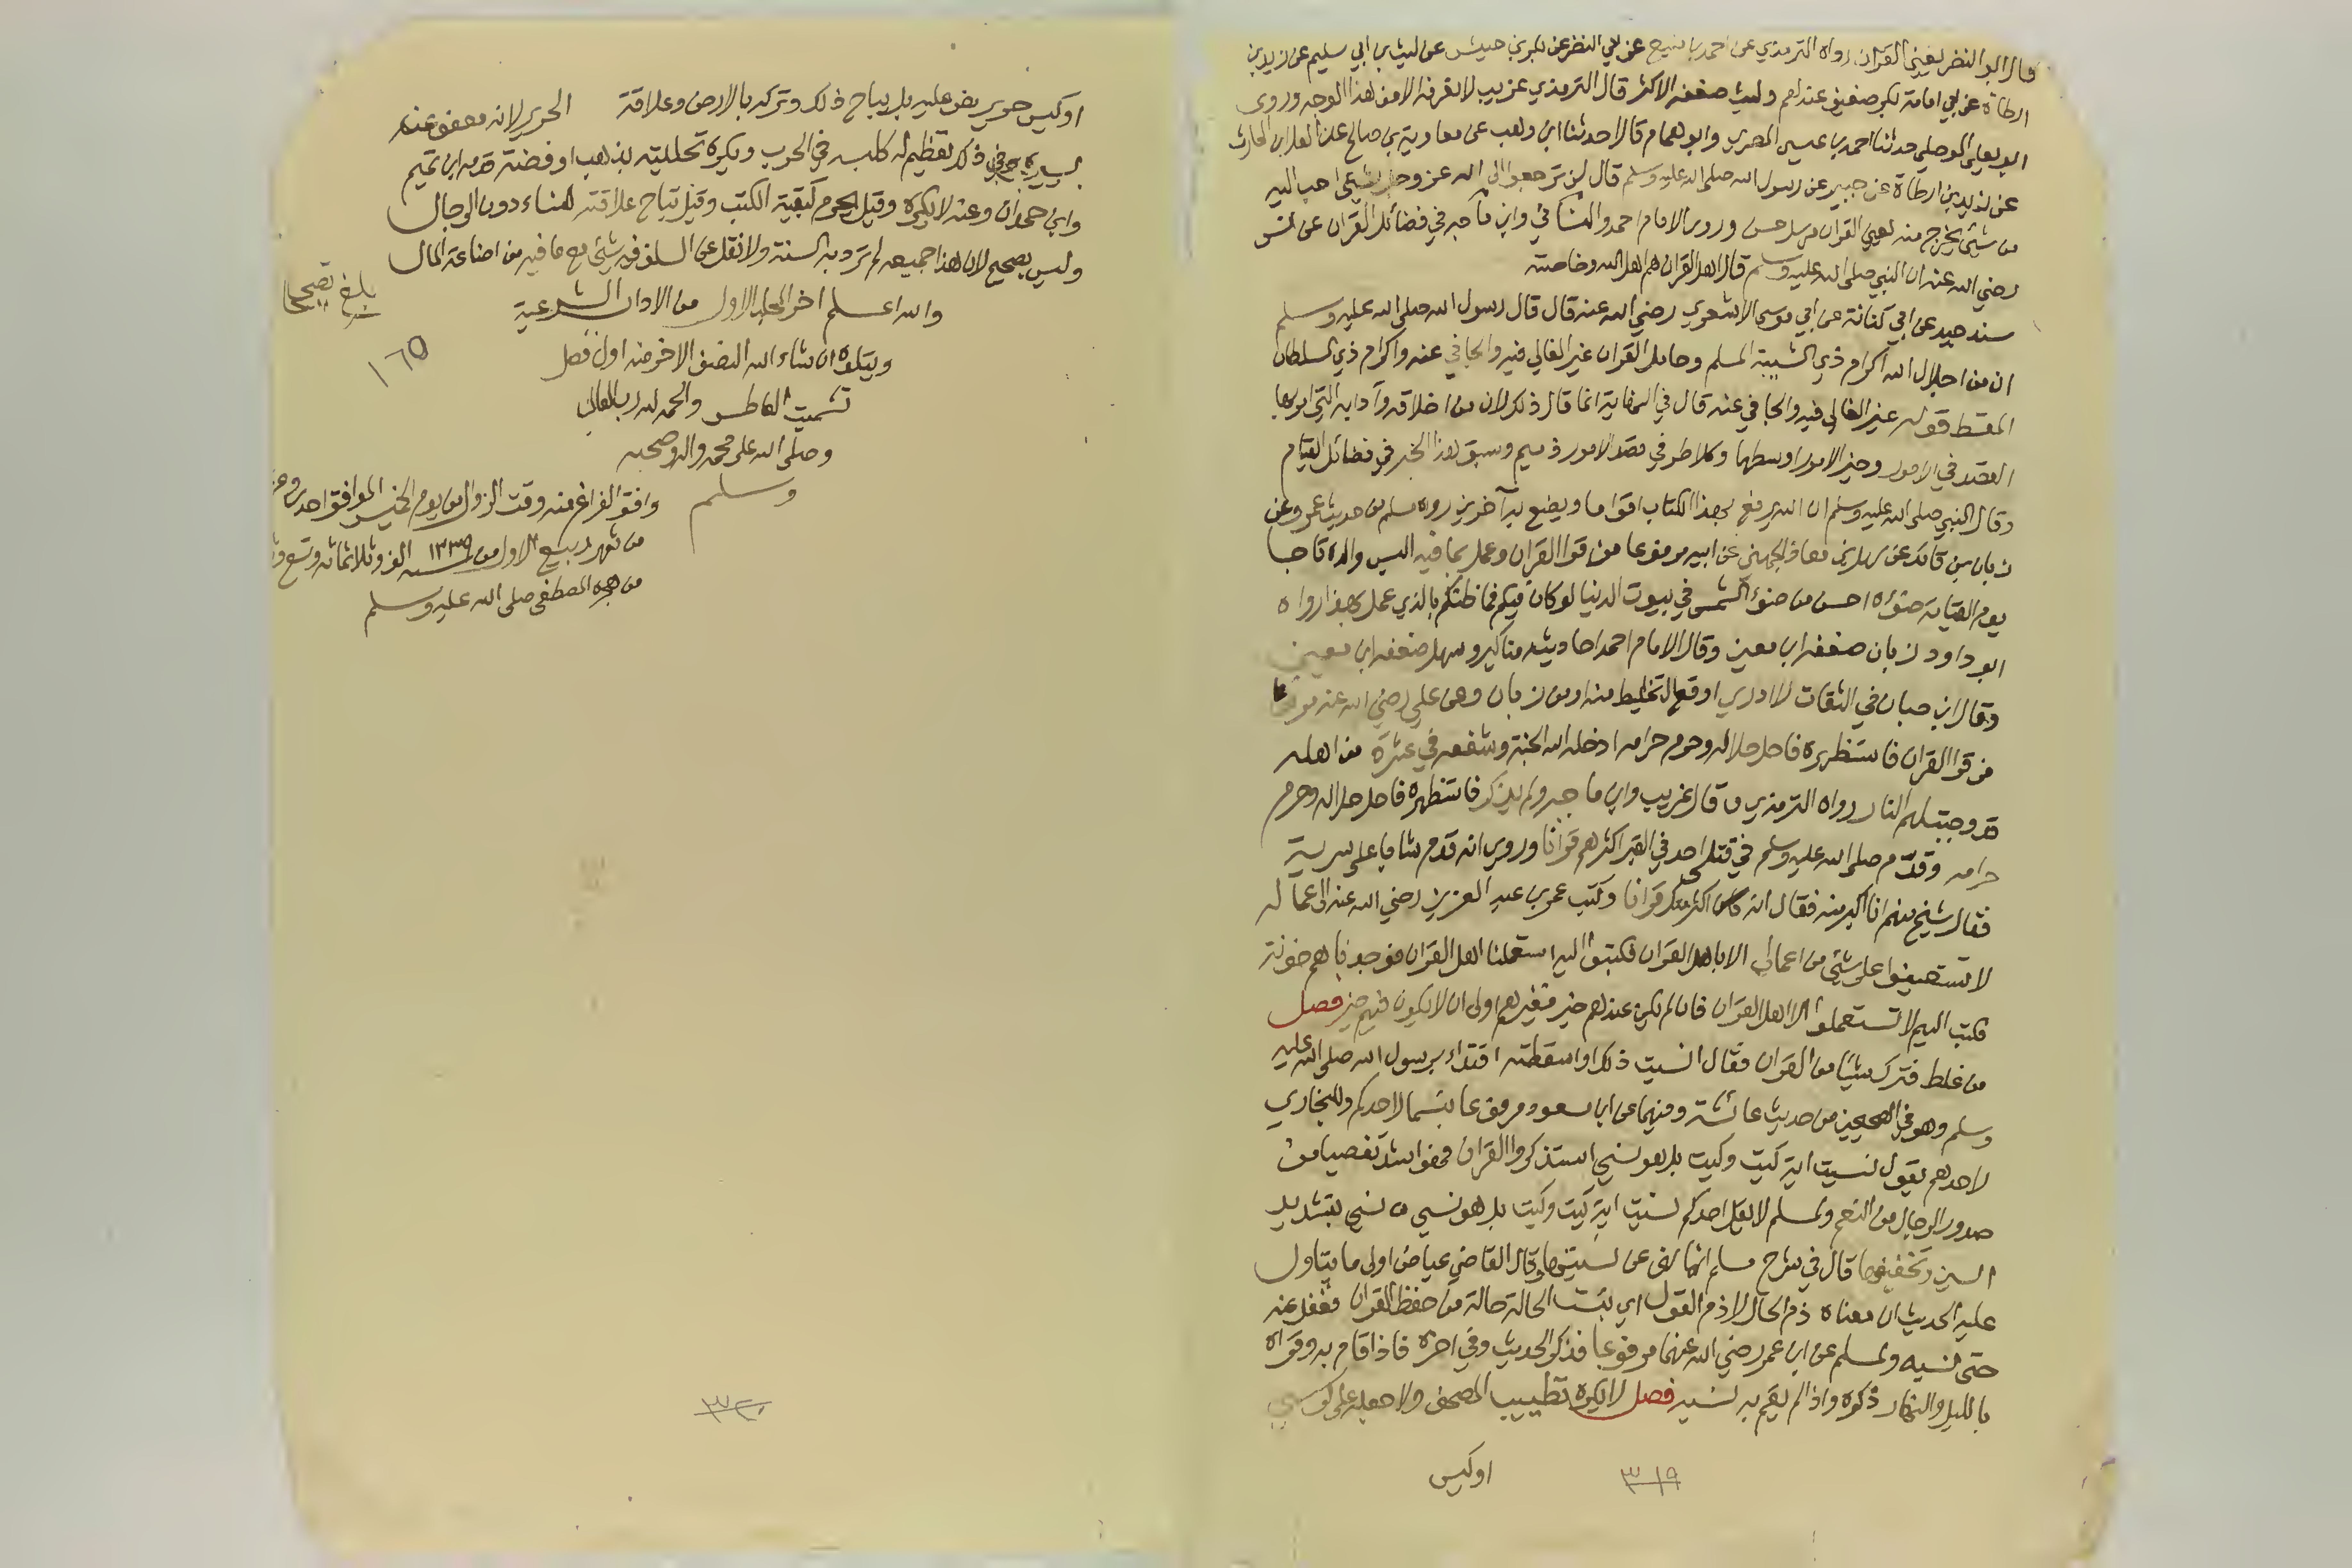 قال ابو النضر يعني القران رواه الترمذي عن احمد بن منيع عن ابي النضر عن بكر بن خنيس عن ليث بن ابي سليم عن زيد بن
ارطاة عن ابي امامة بكر ضعيف عندهم وليث ضعفه الاكثر قال الترمذي غريب لا نعرفه الا من هذا الوجه وروى
ابو يعلى الموصلي حدثنا احمد بن عيسى المصري وابو همام قالا حدثنا ابن وهب عن معاوية بن صالح عن العلا بن الحارث
عن زيد بن ارطاة عن جبير عن رسول الله صلى الله عليه وسلم قال لن ترجعوا الى الله عز وجل بشيء احب اليه
من شيء يخرج منه يعني القران مرسل حسن وروى الامام احمد والنسائي وابن ماجه في فضائل القران عن انس
رضي الله عنه ان النبي صلى الله عليه وسلم قال اهل القران هم اهل الله وخاصته
سند جيد عن ابي كنانة عن ابي موسى الاشعري رضي الله عنه قال قال رسول الله صلى الله عليه وسلم
ان من اجلال الله اكرام ذي الشيبة المسلم وحامل القران غير الغالي فيه والجافي عنه واكرام ذي السلطان
المقسط قوله غير الغالي فيه والجافي عنه قال في النهاية انما قال ذلك لان من اخلاقه وآدابه التي امر بها
القصد في الامور وخير الامور اوسطها وكلا طرفي قصد الامور ذميم وسبق هذا الخبر في فضائل القيام
وقال النبي صلى الله عليه وسلم ان الله يرفع بهذا الكتاب اقواما ويضع به آخرين رواه مسلم من حديث عمر وعن
زبان بن فائد عن سهل بن معاذ الجهني عن ابيه مرفوعا من قرا القران وعمل بما فيه البس والداه تاجا
يوم القيامة ضوؤه احسن من ضوء الشمس في بيوت الدنيا لو كان فيكم فما ظنكم بالذي عمل بهذا رواه
ابو داود زبان ضعفه ابن معين وقال الامام احمد احاديثه مناكير وسهل ضعفه ابن معين
وقال ابن حبان في الثقات لا ادري اوقع التخليط منه او من زبان وعن علي رضي الله عنه مرفوعا
من قرا القران فاستظهره فاحل حلاله وحرم حرامه ادخله الله الجنة وشفعه في عشرة من اهله
قد وجبت لهم النار رواه الترمذي وقال غريب وابن ماجه ولم يذكر فاستظهره فاحل حلاله وحرم
حرامه وقدم صلى الله عليه وسلم في قتلى احد في القبر اكثرهم قرانا وروي انه قدم شابا على سرية
فقال شيخ منهم انا اكبر منه فقال انه اكثر منك قرانا وكتب عمر بن عبد العزيز رضي الله عنه الى عماله
لا تستعينوا على شيء من اعمالي الا باهل القران فكتبوا اليه استعملنا اهل القران فوجدناهم خونة
فكتب اليهم لا تستعملوا الا اهل القران فان لم يكن عندهم خير فغيرهم اولى ان لا يكون فيهم خير فصل
من غلط فترك شيئا من القران فقال انسيت ذلك او اسقطته اقتداء برسول الله صلى الله عليه
وسلم وهو في الصحيحين من حديث عائشة وفيهما عن ابن مسعود مرفوعا بئسما لاحدكم وللبخاري
لاحدهم يقول نسيت اية كيت وكيت بل هو نسي استذكروا القران فهو اشد تفصيا من
صدور الرجال من النعم ولمسلم لا يقل احدكم نسيت اية كيت وكيت بل هو نسي نسي بتشديد
السين وتخفيفها قال في شرح مسلم انما نهى عن نسيتها وقال القاضي عياض اولى ما يتاول
عليه الحديث ان معناه ذم الحال لا ذم القول اي بئست الحالة حالة من حفظ القران فغفل عنه
حتى نسيه ولمسلم عن ابن عمر رضي الله عنهما مرفوعا فذكر الحديث وفي اخره فاذا قام به وقراه
بالليل والنهار ذكره واذا لم يقم به نسيه فصل لا يكره تطييب المصحف ولا جعله على كرسي
اوكيس
٣١٩
اوكيس حرير نص عليه بل يباح ذلك وتركه بالارض وعلاقة الحرير لانه معفو عنه
ذلك تعظيم له كلبسه في الحرب ويكره تحليته بذهب او فضة قدمه ابن تميم
وابن حمدان وعنه لا يكره وقيل يحرم كبقية الكتب وقيل تباح علاقته للنساء دون الرجال
وليس بصحيح لان هذا جميعه لم ترد به السنة ولا نقل عن السلف فيه شيء مع ما فيه من اضاعة المال
والله اعلم اخر المجلد الاول من الاداب الشرعية
بلغ تصحيحا
ويتلوه ان شاء الله النصف الاخر منه اول فصل
١٦٥
تشميت العاطس والحمد لله رب العالمين
وصلى الله على محمد واله وصحبه
وسلم
وافق الفراغ منه وقت الزوال من يوم الخميس الموافق احد
من شهر ربيع الاول من سنة ١٣٣٩ الف وثلاثمائة وتسع
من هجرة المصطفى صلى الله عليه وسلم
٣٢٠